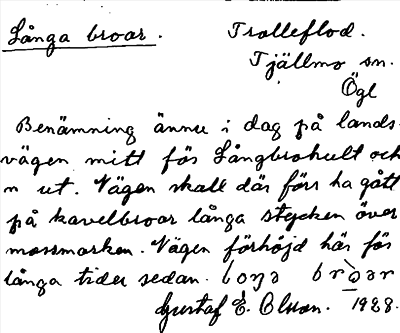 Långa broar. Trolleflod.
Tjällmo sn.
Ögl
Benämning ännu i dag på lands-
vägen mitt för Långbrohult och
n ut. Vägen skall där förr ha gått
på kavelbroar långa stycken över
mossmarken. Vägen förhöjd här för
långa tider sedan.
Gustaf E. Olsson. 1928.